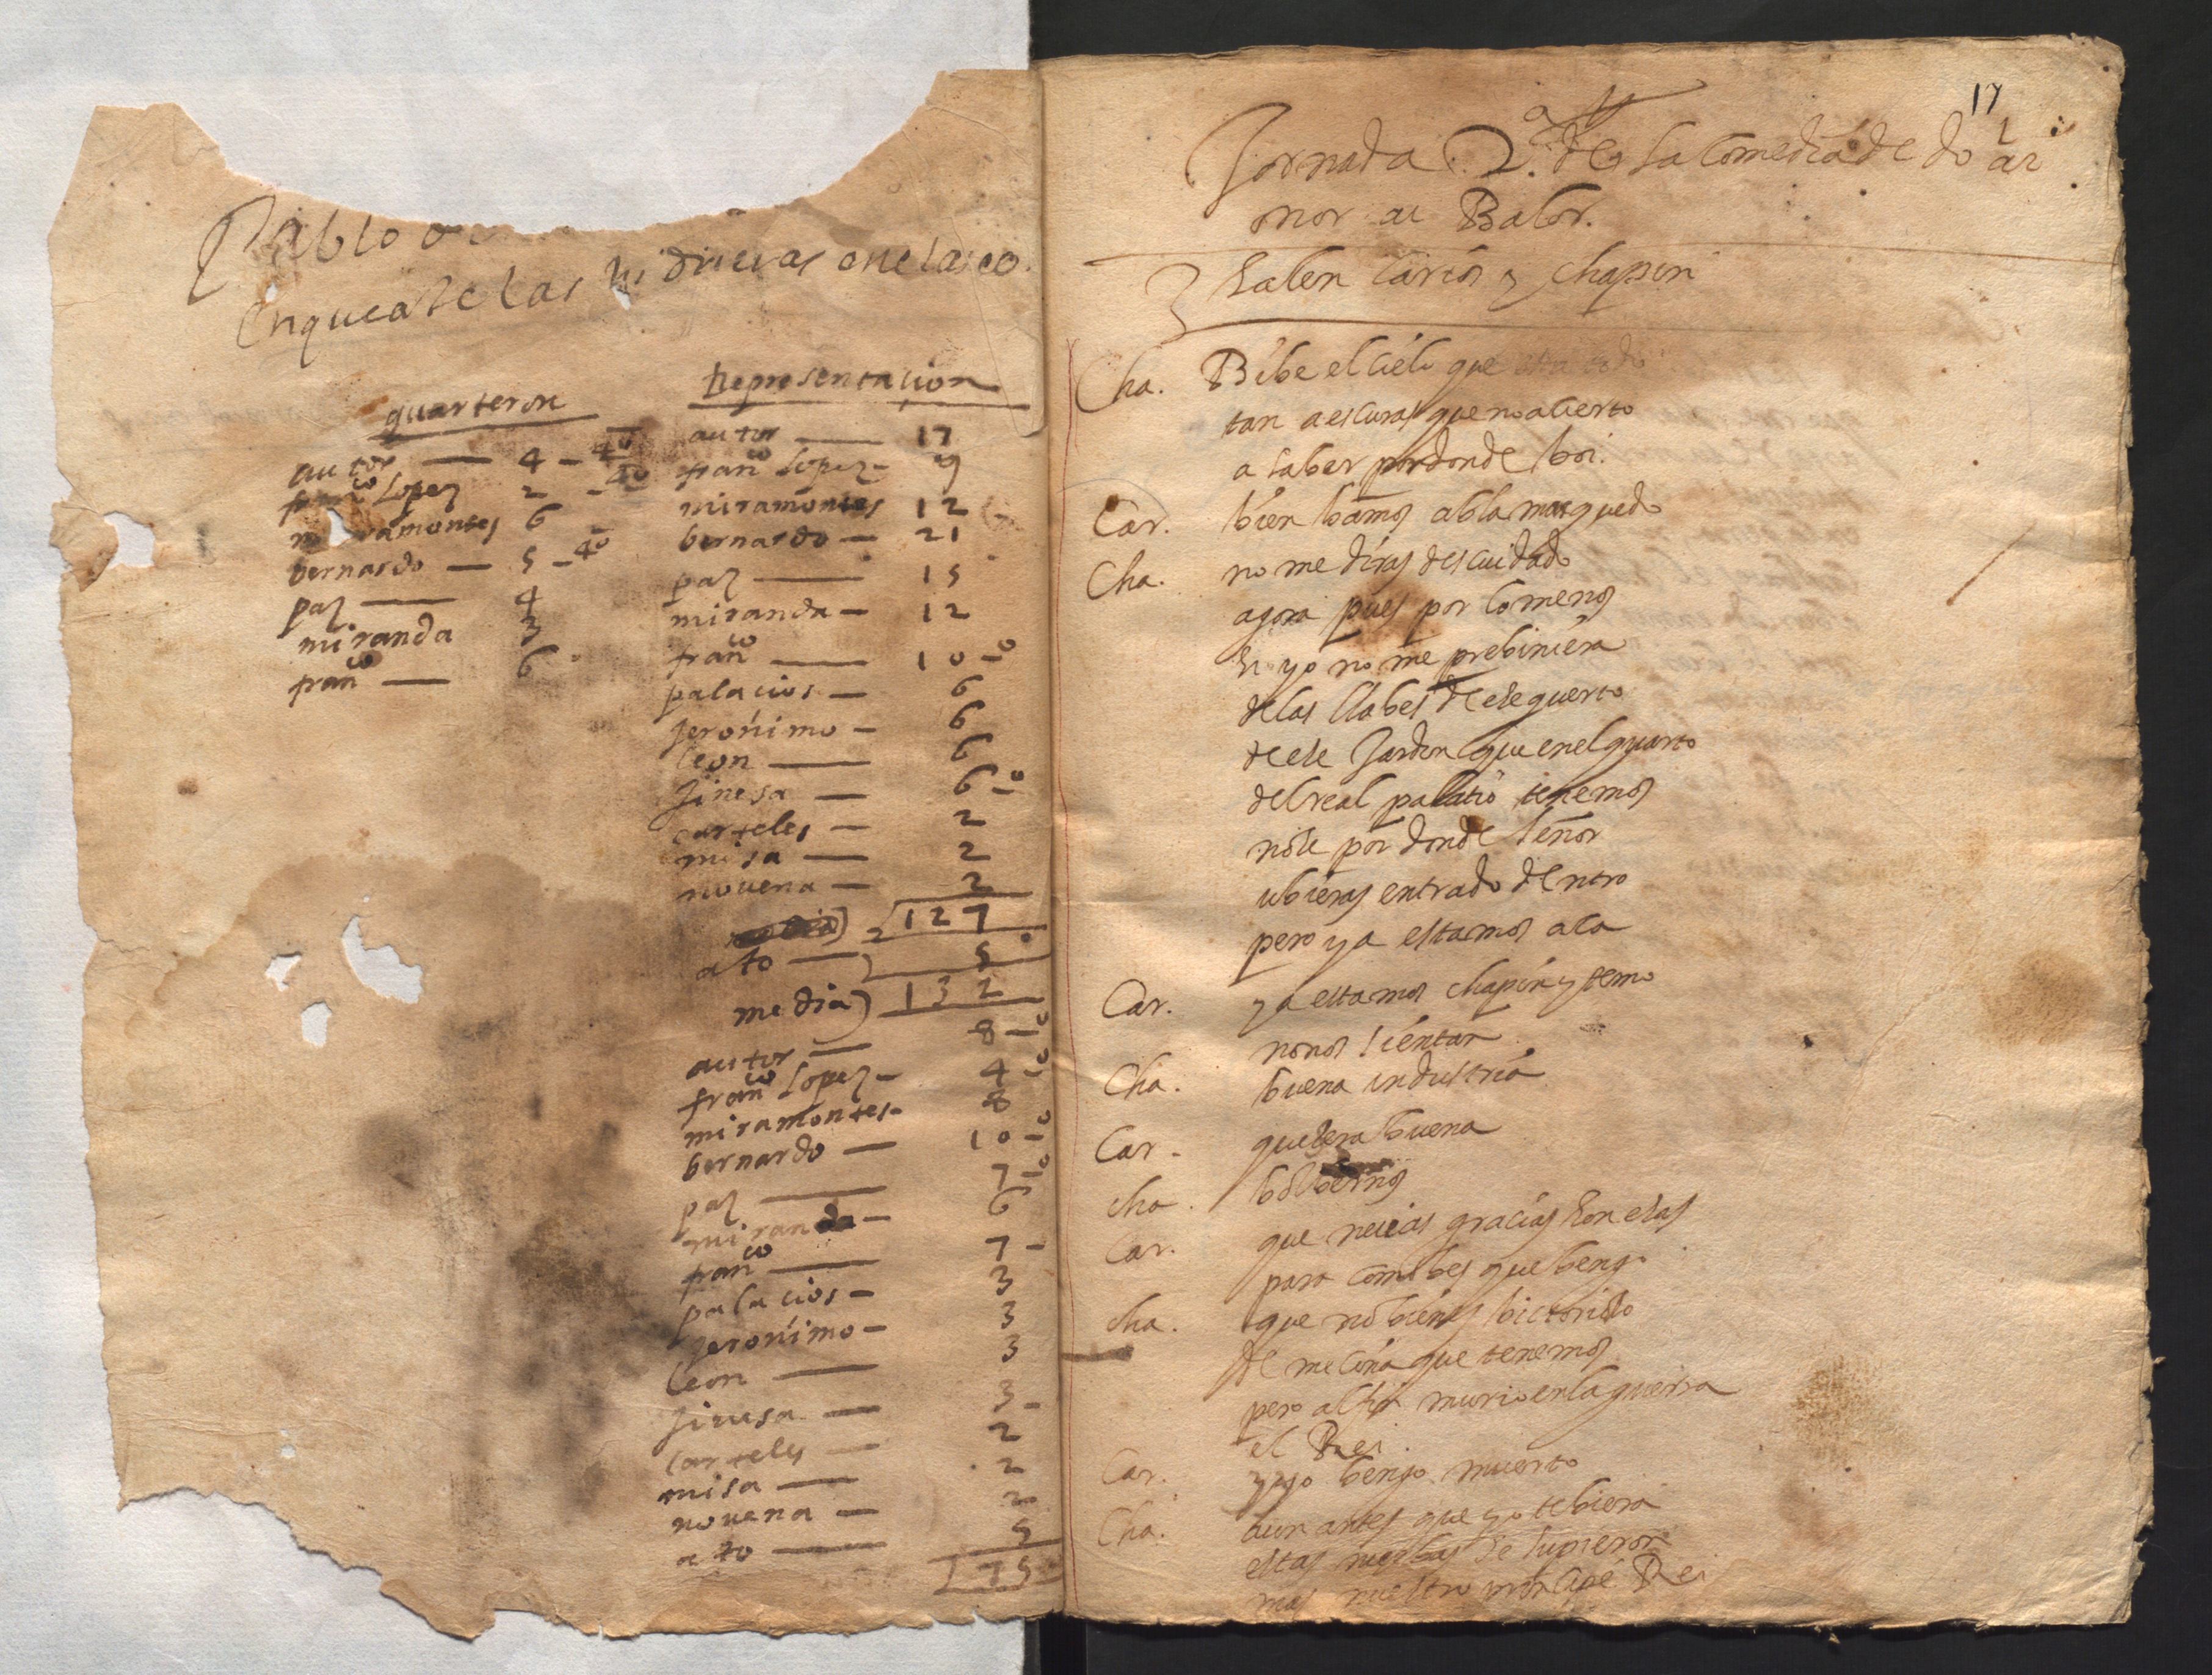 Pablo
quarteron
autor — 4 - 4º
franco Lopez 2 - 4º
miramontes 6
bernardo — 5 - 4º
paz — 4
miranda 3
franco — 6
Representacion
autor — 17
franco Lopez - 9
miramontes 12
bernardo — 21
paz — 15
miranda — 12
franco — 10 - º
palacios — 6
jeronimo — 6
leon — 6
jinesa — 6 - º
carteles — 2
misa — 2
novena — 2
127
ato — 5
132
media)
autor — 8 - º
franco Lopez - 4 - º
miramontes - 8
bernardo — 10 - º
paz — 7 - º
miranda - 6
franco — 7 -
palacios - 3
jeronimo - 3
leon — 3
jinesa — 3 -
carteles — 2
misa — 2
novena — 2
ato — 5
175
17
Jornada 2ª de la comedia de
onor al Balor.
Salen Carlos y chapin
Cha. Bibe el cielo que
tan a escuras que no acierto
a saber por donde boi.
Car. bien bamos abla mas quedo
Cha. no me diras descuidado
agora pues por lo menos
si yo no me prebiniera
de las llabes de ese guerto
de ese Jardin que en el quarto
del real palacio tenemos
nose por donde señor
ubieras entrado dentro
pero ya estamos aca
Car. ya estamos chapin y temo
no nos sientan
Cha. buena industria
Car. que sera buena
cha. bolbernos
Car. que necias gracias son esas
para como bes que bengo
cha. que no bienes bictorioso
de meçina que tenemos
pero al fin murio en la guerra
el Rei.
Car. y yo bengo muerto
Cha. aun antes que yo te biera
estas nuebas se supieron
mas nuestro principe Rei